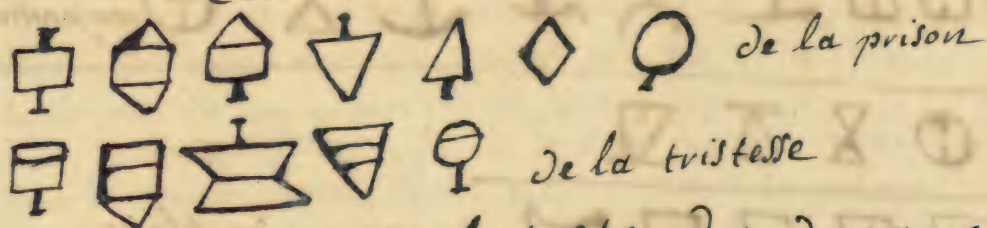 de la prison
de la tristesse